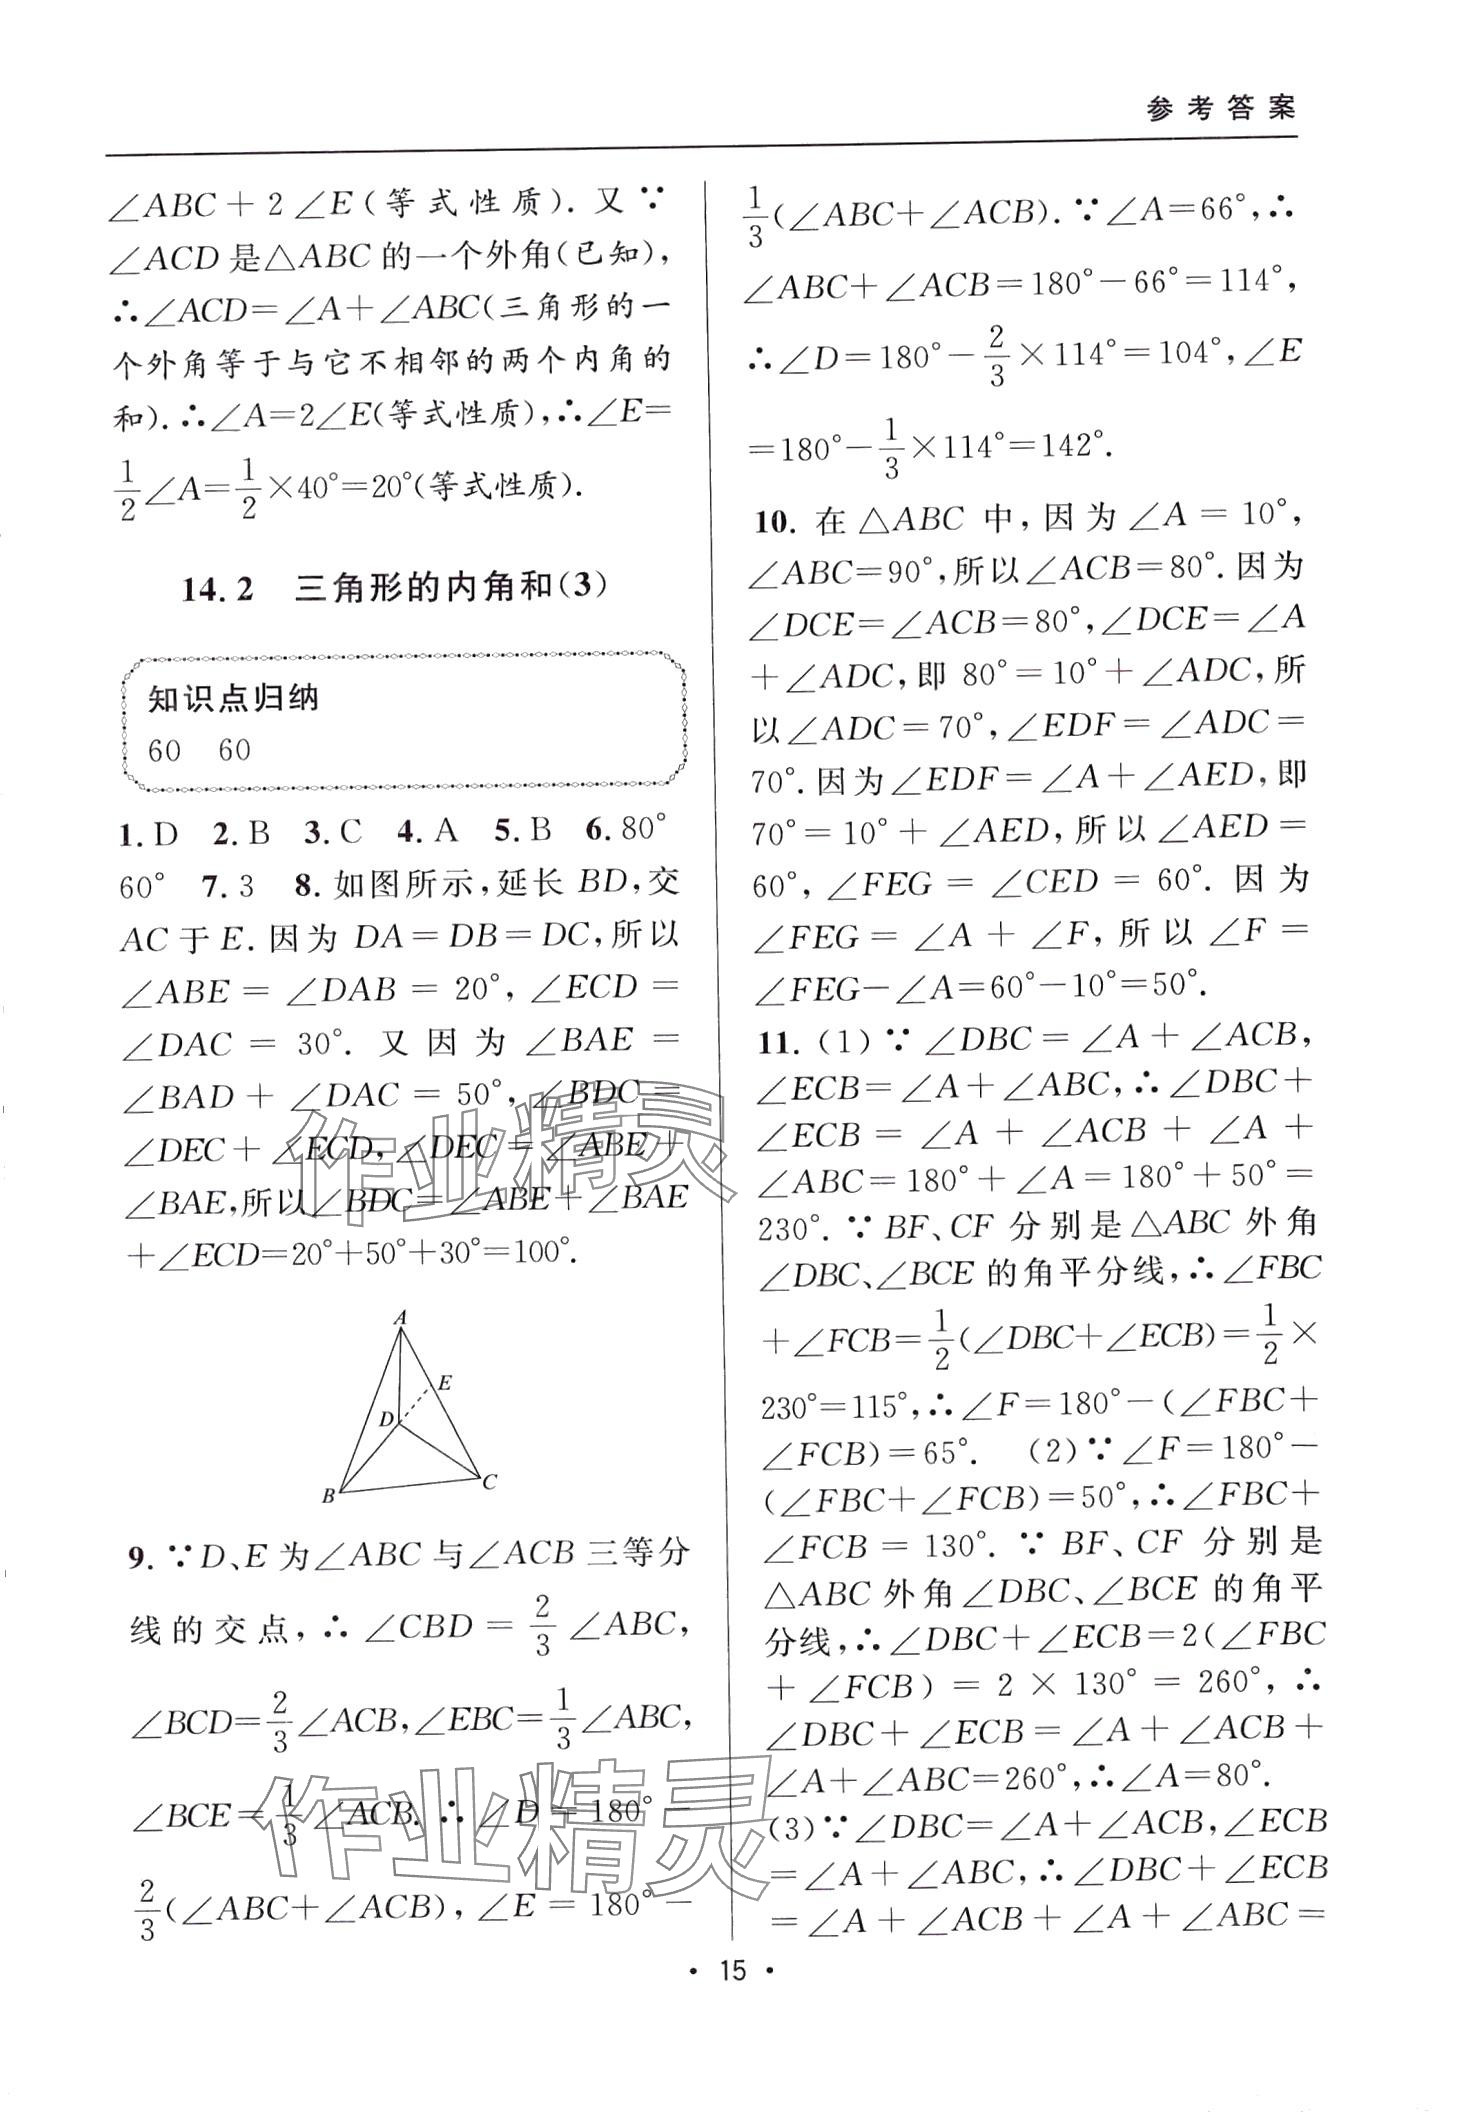 参考答案
∠ABC+2∠E(等式性质). 又∵
∠ACD是△ABC的一个外角(已知),
∴∠ACD=∠A+∠ABC(三角形的一
个外角等于与它不相邻的两个内角的
和).∴∠A=2∠E(等式性质),∴∠E=
1/2∠A=1/2×40°=20°(等式性质).
14.2 三角形的内角和(3)
知识点归纳
60 60
1. D 2. B 3. C 4. A 5. B 6. 80°
60° 7. 3 8. 如图所示,延长BD,交
AC于E. 因为DA=DB=DC,所以
∠ABE=∠DAB=20°,∠ECD=
∠DAC=30°. 又因为∠BAE=
∠BAD+∠DAC=50°,∠BDC=
∠DEC+∠ECD,∠DEC=∠ABE+
∠BAE,所以∠BDC=∠ABE+∠BAE
+∠ECD=20°+50°+30°=100°.
A
E
D
B
C
9. ∵D、E为∠ABC与∠ACB三等分
线的交点,∴∠CBD=2/3∠ABC,
∠BCD=2/3∠ACB,∠EBC=1/3∠ABC,
∠BCE=1/3∠ACB. ∴∠D=180°-
2/3(∠ABC+∠ACB),∠E=180°-
1/3(∠ABC+∠ACB). ∵∠A=66°,∴
∠ABC+∠ACB=180°-66°=114°,
∴∠D=180°-2/3×114°=104°,∠E
=180°-1/3×114°=142°.
10. 在△ABC中,因为∠A=10°,
∠ABC=90°,所以∠ACB=80°. 因为
∠DCE=∠ACB=80°,∠DCE=∠A
+∠ADC,即80°=10°+∠ADC,所
以∠ADC=70°,∠EDF=∠ADC=
70°. 因为∠EDF=∠A+∠AED,即
70°=10°+∠AED,所以∠AED=
60°,∠FEG=∠CED=60°. 因为
∠FEG=∠A+∠F,所以∠F=
∠FEG-∠A=60°-10°=50°.
11. (1)∵∠DBC=∠A+∠ACB,
∠ECB=∠A+∠ABC,∴∠DBC+
∠ECB=∠A+∠ACB+∠A+
∠ABC=180°+∠A=180°+50°=
230°. ∵BF、CF分别是△ABC外角
∠DBC、∠BCE的角平分线,∴∠FBC
+∠FCB=1/2(∠DBC+∠ECB)=1/2×
230°=115°,∴∠F=180°-(∠FBC+
∠FCB)=65°. (2)∵∠F=180°-
(∠FBC+∠FCB)=50°,∴∠FBC+
∠FCB=130°. ∵BF、CF分别是
△ABC外角∠DBC、∠BCE的角平
分线,∴∠DBC+∠ECB=2(∠FBC
+∠FCB)=2×130°=260°,∴
∠DBC+∠ECB=∠A+∠ACB+
∠A+∠ABC=260°,∴∠A=80°.
(3)∵∠DBC=∠A+∠ACB,∠ECB
=∠A+∠ABC,∴∠DBC+∠ECB
=∠A+∠ACB+∠A+∠ABC=
• 15 •
作业精灵
作业精灵